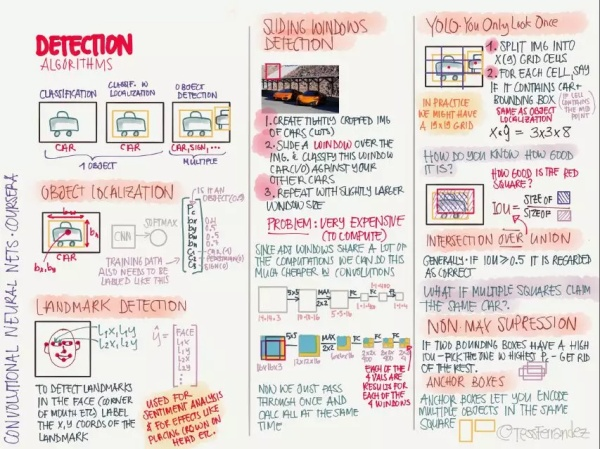 CONVOLUTIONAL NEURAL NETS: COURSERA
DETECTION
ALGORITHMS
CLASSIFICATION
CLASSIF. W
LOCALIZATION
OBJECT
DETECTION
CAR
CAR
CAR, SIGN, ...
1 OBJECT
MULTIPLE
OBJECT LOCALIZATION
CAR
CNN
SOFTMAX
IS IT AN
TRAINING DATA
ALSO NEEDS TO BE
LABELED LIKE THIS
LANDMARK DETECTION
L1X, L1Y
L2X, L2Y
FACE
L1X
L1Y
L2X
TO DETECT LANDMARKS
IN THE FACE (CORNER
OF MOUTH ETC) LABEL
THE X,Y COORDS OF THE
LANDMARK
USED FOR
SENTIMENT ANALYSIS
& FOR EFFECTS LIKE
PLACING CROWN ON
HEAD ETC.
SLIDING WINDOWS
DETECTION
1. CREATE TIGHTLY CROPPED IMG
OF CARS
2. SLIDE A WINDOW OVER THE
IMG. & CLASSIFY THIS WINDOW
AGAINST YOUR
OTHER CARS
3. REPEAT WITH SLIGHTLY LARGER
WINDOW SIZE
PROBLEM: VERY EXPENSIVE
(TO COMPUTE)
SINCE ADJ WINDOWS SHARE A LOT OF
THE COMPUTATIONS WE CAN DO THIS
MUCH CHEAPER BY CONVOLUTIONS
5x5
MAX
2x2
FC
FC
14×14×3
5x5
MAX
2x2
FC
FC
FC
EACH OF
THE 4 VALS ARE
RESULTS FOR
EACH OF THE
4 WINDOWS
NOW WE JUST PASS
THROUGH ONCE AND
CALC ALL AT THE
SAME TIME
YOLO - You Only Look Once
1. SPLIT IMG INTO
X(9) GRID CELLS
2. FOR EACH CELL, SAY
IF IT CONTAINS CAR +
BOUNDING BOX
IF CELL
CONTAINS
THE MID
POINT
SAME AS OBJECT
LOCALIZATION
IN PRACTICE
WE MIGHT HAVE
A 19x19 GRID
3x3x8
HOW DO YOU KNOW HOW GOOD
IT IS?
HOW GOOD IS THE RED
SQUARE?
IOU =
SIZE OF
SIZE OF
INTERSECTION OVER UNION
GENERALLY: IF IOU ≥ 0.5 IT IS REGARDED
AS CORRECT
WHAT IF MULTIPLE SQUARES CLAIM
THE SAME CAR?
NON-MAX SUPRESSION
IF TWO BOUNDING BOXES HAVE A HIGH
IOU - PICK THE ONE W HIGHEST Pc - GET RID
OF THE REST.
ANCHOR BOXES
ANCHOR BOXES LET YOU ENCODE
MULTIPLE OBJECTS IN THE SAME
SQUARE
@TessFerrandez